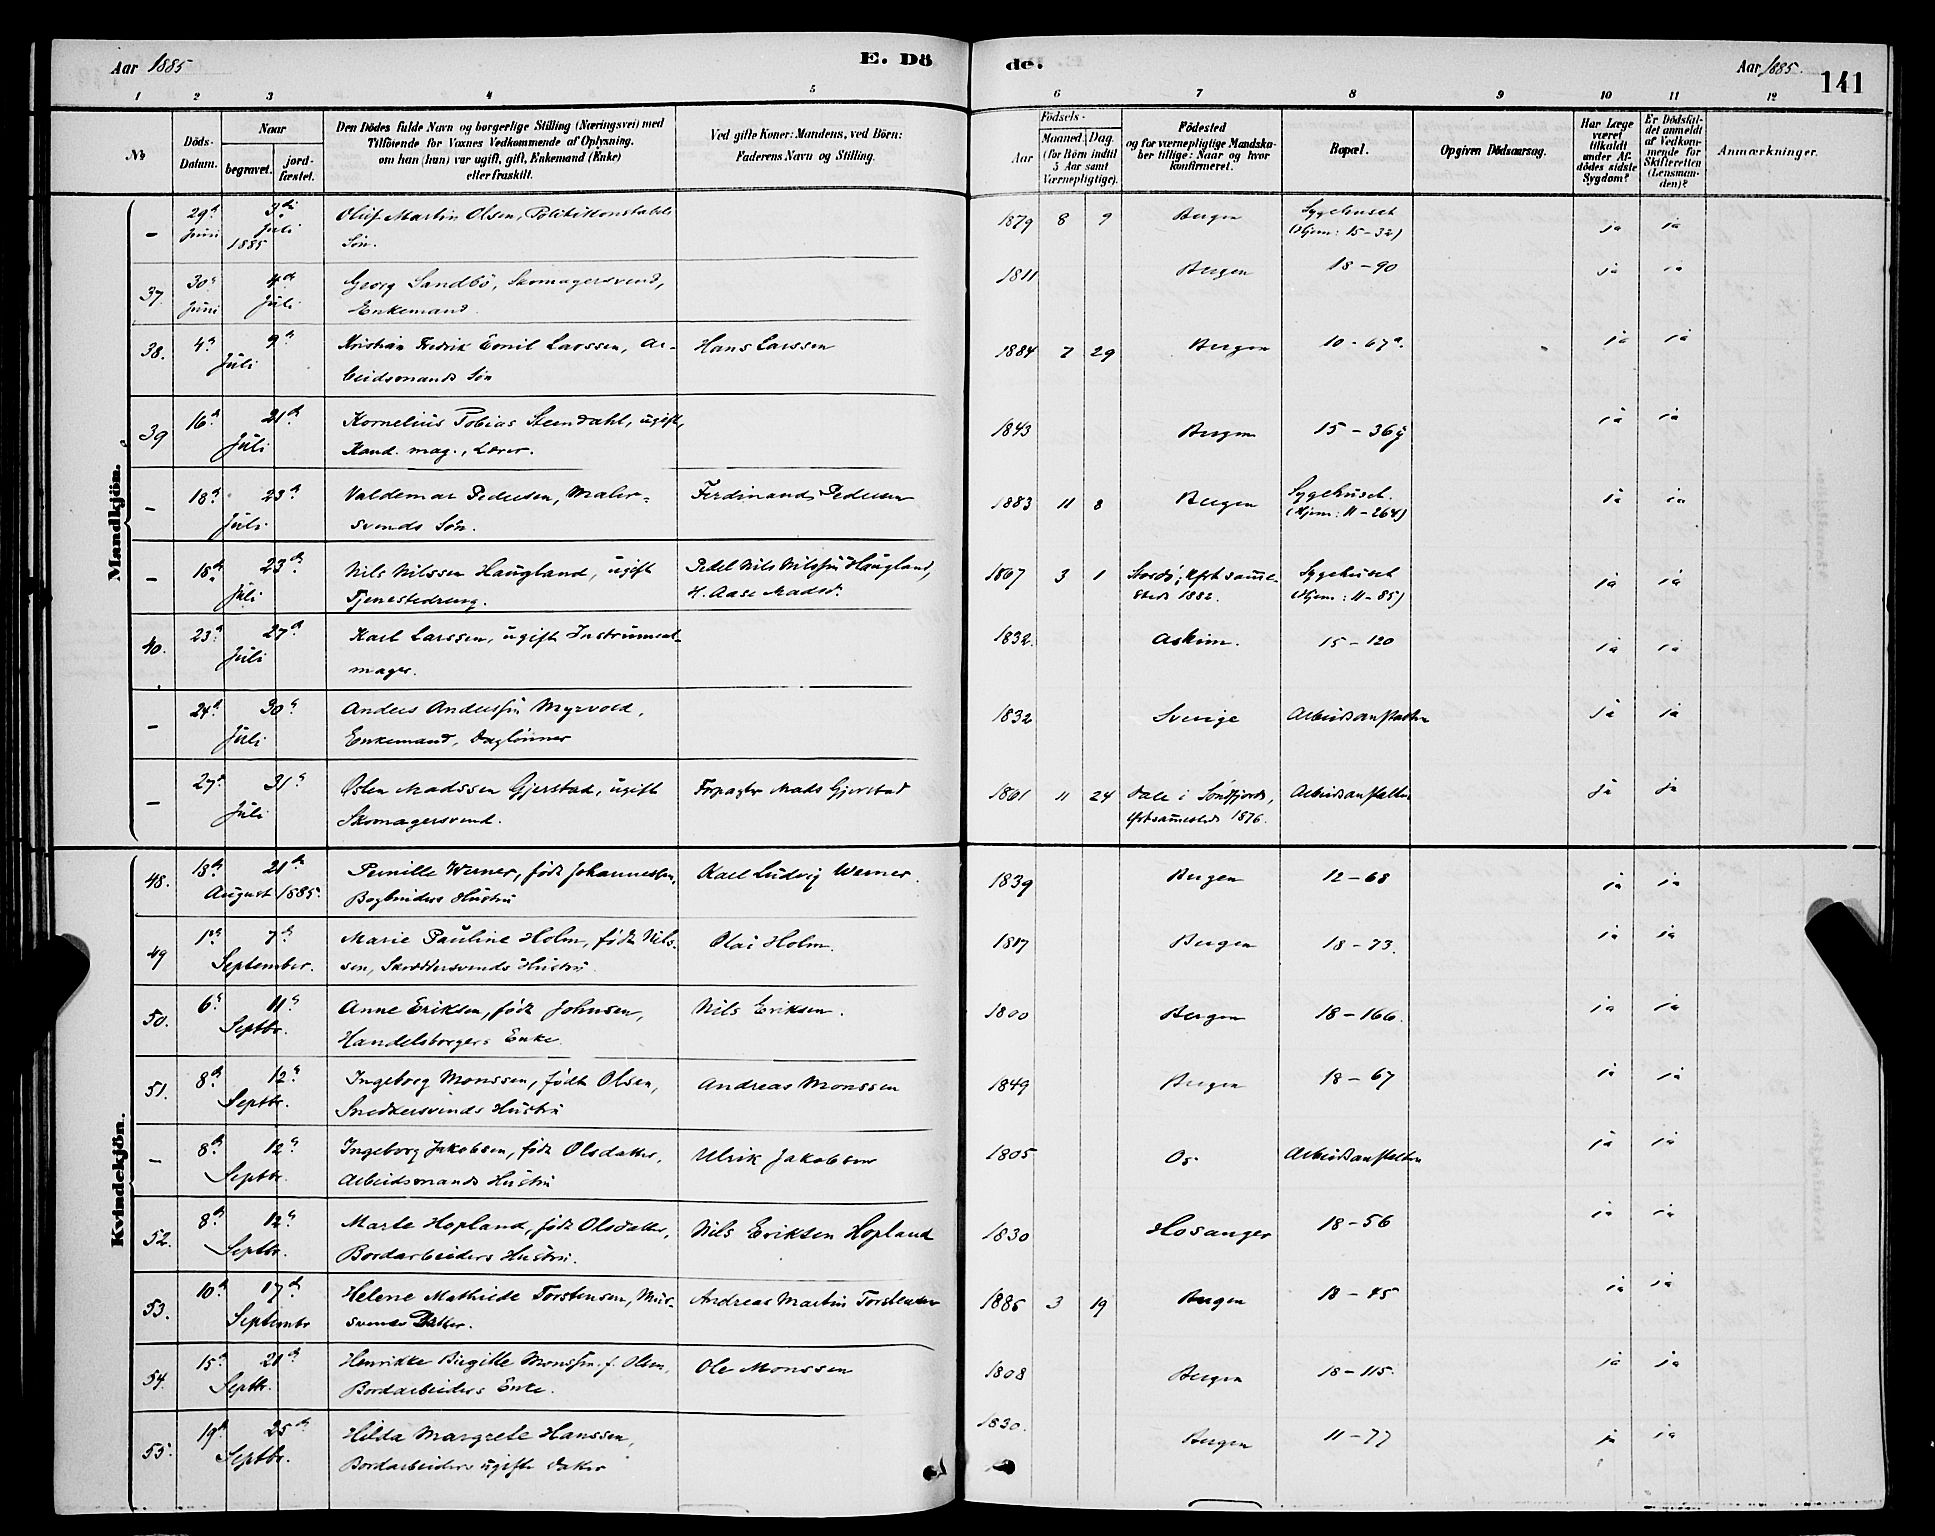 Aar 1885 E. Dö de. Aar 1885. 141
1 2 3 4 5 6 7 8 9 10 11 12
No
Döds-Datum.
Naar
begravet.
jord-fæstet.
Den Dödes fulde Navn og borgerlige Stilling (Næringsvei) med
Tilföiende for Voxnes Vedkommende af Oplysning,
om han (hun) var ugift, gift, Enkemand (Enke)
eller fraskilt.
Ved gifte Koner: Mandens, ved Börn:
Faderens Navn og Stilling.
Födsels-
Aar
Maaned. Dag.
(for Börn indtil
5 Aar samt
Værnepligtige).
Födested
og for værnepligtige Mandska-
ber tillige: Naar og hvor
konfirmeret.
Bopæl.
Opgiven Dödsaarsag.
Har Læge
været
tilkaldt
under Af-
dödes sidste
Sygdom?
Er Dödsfal-
det anmeldt
af Vedkom-
mende for
Skifteretten
(Lensman-
den)?
Anmærkninger.
Mandkjön.
- 29de Juni 3die Juli 1885 Oluf Martin Olsen, Politikonstabels 1879 8 9 Bergen Sygehuset ja ja
Sön. (Hjem: 15-32)
37 30te Juni 4de Juli Georg Sandbö, Skomagersvend, 1811 Bergen 18-90 ja ja
Enkemand.
38. 4de 9de Juli Kristian Fredrik Emil Larssen, Ar- Hans Larssen 1884 7 29 Bergen 10-67a. ja ja
beidsmands Sön
39 16de 21de Juli Kornelius Tobias Stendahl, ugift, 1843 Bergen 15-36 ja ja
Kand. mag., Lærer.
- 18de 23de Juli Valdemar Pedersen, Maler- Ferdinand Pedersen 1883 11 8 Bergen Sygehuset. ja ja
svends Sön. (Hjem: 11-264)
- 18de 23de Juli Nils Nilssen Haugland, ugift Nils Nilssen Haugland, 1867 3 1 Stordö; Sygehuset ja ja
Tjenestedreng. H. Aase Madsd. 1882. (Hjem: 11-85)
40. 23de 27de Juli Karl Larssen, ugift Instrument- 1832. Askim. 15-120 ja ja
mager.
- 24de 30te Juli Anders Anderssen Myrvold, 1832 Sverige Arbeidsanstalten ja ja
Enkemand, Daglönner
- 27de 31te Juli Osten Madssen Gjerstad, ugift Forpagter Mads Gjerstad 1861 11 24 Dale i Söndfjord, Arbeidsanstalten ja ja
Skomagersvend. 1876.
Kvindekjön.
48. 18de 21de August 1885. Pernille Werner, födt Johannessen, Karl Ludvig Werner. 1839 Bergen 12-68 ja ja
Bogbinders Hustru
49 1ste 7de September. Marie Pauline Holm, födt Nils- Olai Holm. 1817 Bergen 18-73. ja ja
sen, Skræddersvends Hustru.
50. 6te 11te Septbr. Anne Eriksen, födt Johnsen, Nils Eriksen. 1800 Bergen 18-166. ja ja
Handelsborgers Enke.
51. 8de 12te Septbr. Ingeborg Monssen, födt Olsen, Andreas Monssen 1849 Bergen 18-67 ja ja
Snedkersvends Hustru
- 8de 12te Septbr. Ingeborg Jakobsen, födt Olsdatter, Ulrik Jakobsen 1805 Os Arbeidsanstalten ja ja
Arbeidsmands Hustru
52. 8de 12te Septbr. Marte Hopland, födt Olsdatter, Nils Eriksen Hopland 1830 Hosanger 18-56 ja ja
Bordarbeiders Hustru.
53. 10de 17de Septembr Helene Mathilde Torstensen, Mur- Andreas Martin Torstensen 1885 3 19 Bergen 18-45 ja ja
svends Datter.
54. 15de 21de Septbr. Henrikke Birgitte Monssen f. Olsen, Ole Monssen 1808 Bergen 18-115. ja ja
Bordarbeiders Enke.
55. 19de 25de Septbr. Hilda Margrete Hanssen, 1830. Bergen 11-77 ja ja
Bordarbeiders ugifte Datter